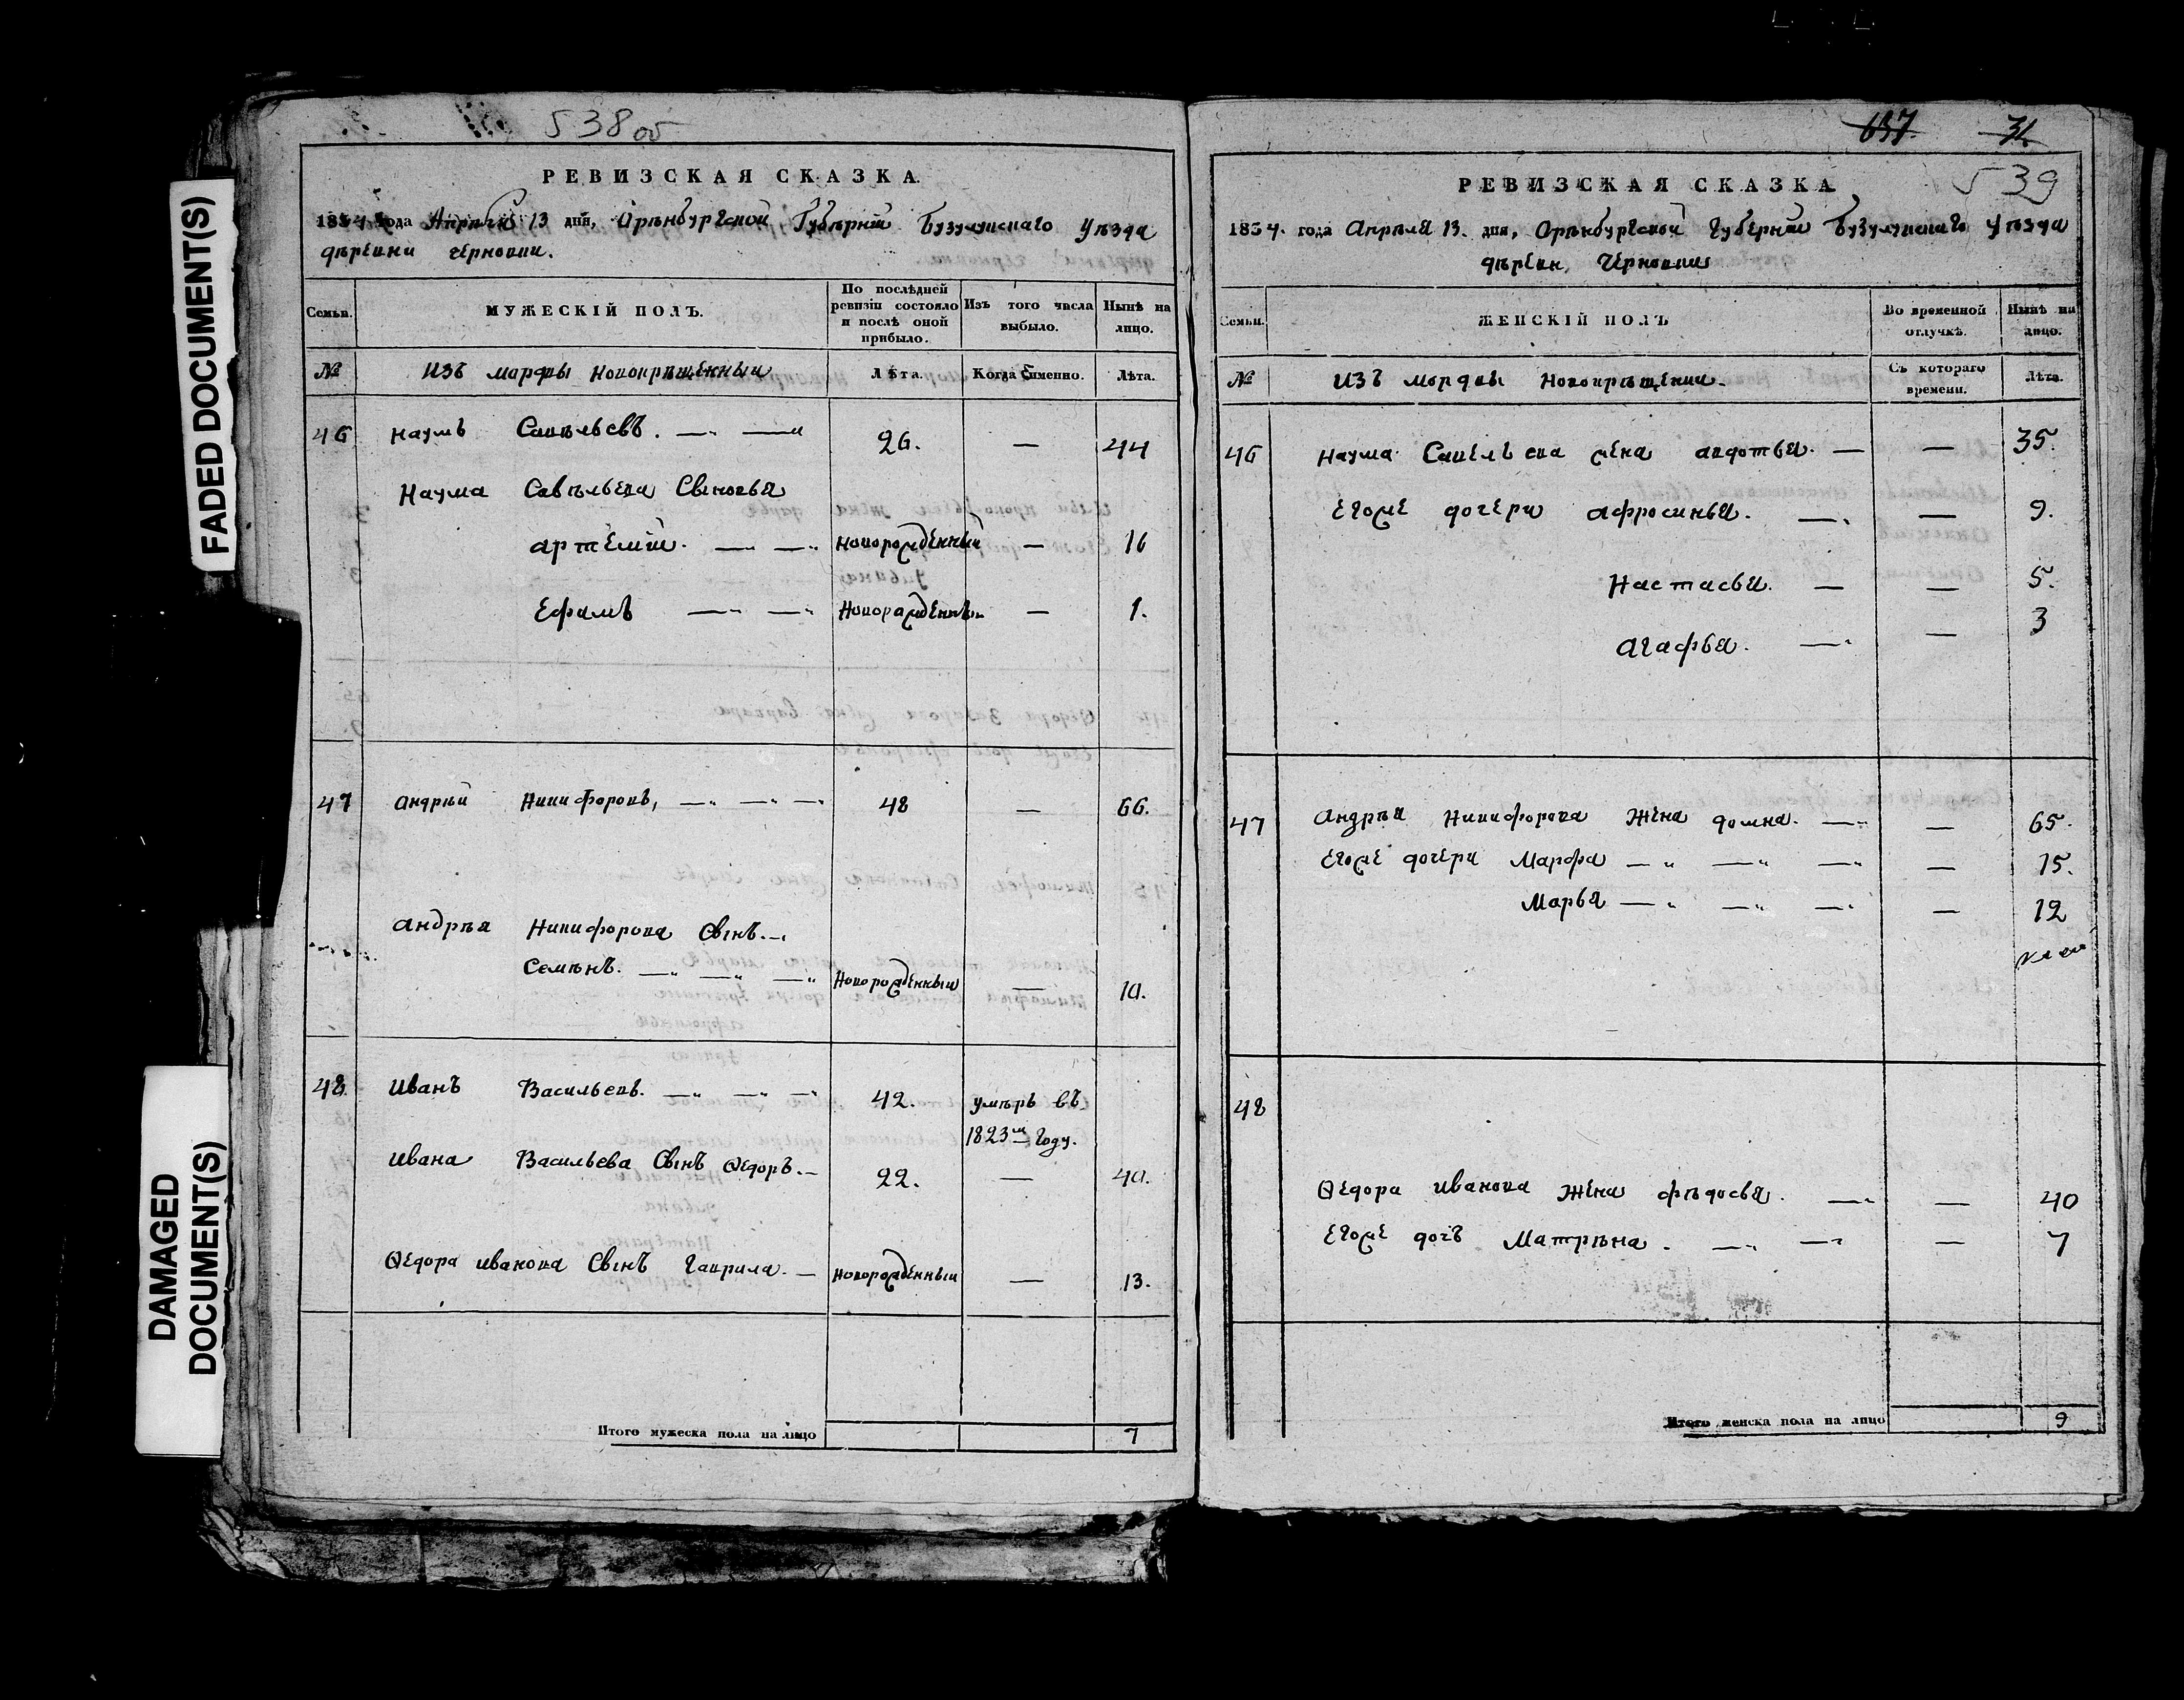 FADED DOCUMENT(S)
DAMAGED
DOCUMENT(S)
538 об
РЕВИЗСКАЯ СКАЗКА
1834 года Апрѣля 13 дня, Орѣнбургской Губѣрнїи Бузулуцкаго Уѣзда
дѣревни черновки.
Семьи. МУЖЕСКІЙ ПОЛЪ. По послѣдней ревизіи состояло и послѣ оной прибыло. Изъ того числа выбыло. Нынѣ на лицо.
№ Изъ мордвы новокрѣщенныи Лѣта. Когда именно. Лѣта.
46 Наумъ Савѣльевъ. 26. — 44
Наума Савѣльева Сыновья
Артемїи. Новорожденный — 16
Ефимъ Новорожденны — 1.
47 Андрѣй Никифоровъ, 48 — 66.
Андрѣя Никифорова Сынъ.
Семѣнъ. Новорожденныи — 10.
48 Иванъ Васильевъ. 42. умѣръ въ
1823м Году.
Ивана Васильева Сынъ Ѳедоръ. 22. — 40.
Ѳедора Иванова Сынъ Гаврила. Новорожденныи — 13.
Итого мужеска пола на лицо 7
637. 31
539
РЕВИЗСКАЯ СКАЗКА
1834. года Апрѣля 13. дня, Орѣнбургской Губернїи Бузулуцкаго Уѣзда
дѣревн, Черновки
Семьи. ЖЕНСКІЙ ПОЛЪ Во временной отлучкѣ. Нынѣ на лицо.
№ Изъ мордвы Новокрѣщении. Съ котораго времени. Лѣта.
46 Наума Савельева жена авдотья. — 35.
Егоже дочери Афросинья. — 9.
Настасья. — 5.
Агафья. — 3
47 Андрѣя Никифорова Жена домна. — 65.
Егоже дочери Марфа — 15.
Марья — 12
48
Ѳедора Иванова Жена фѣдосья. — 40
Егоже дочь Матрѣна. — 7
Итого женска пола на лицо 9